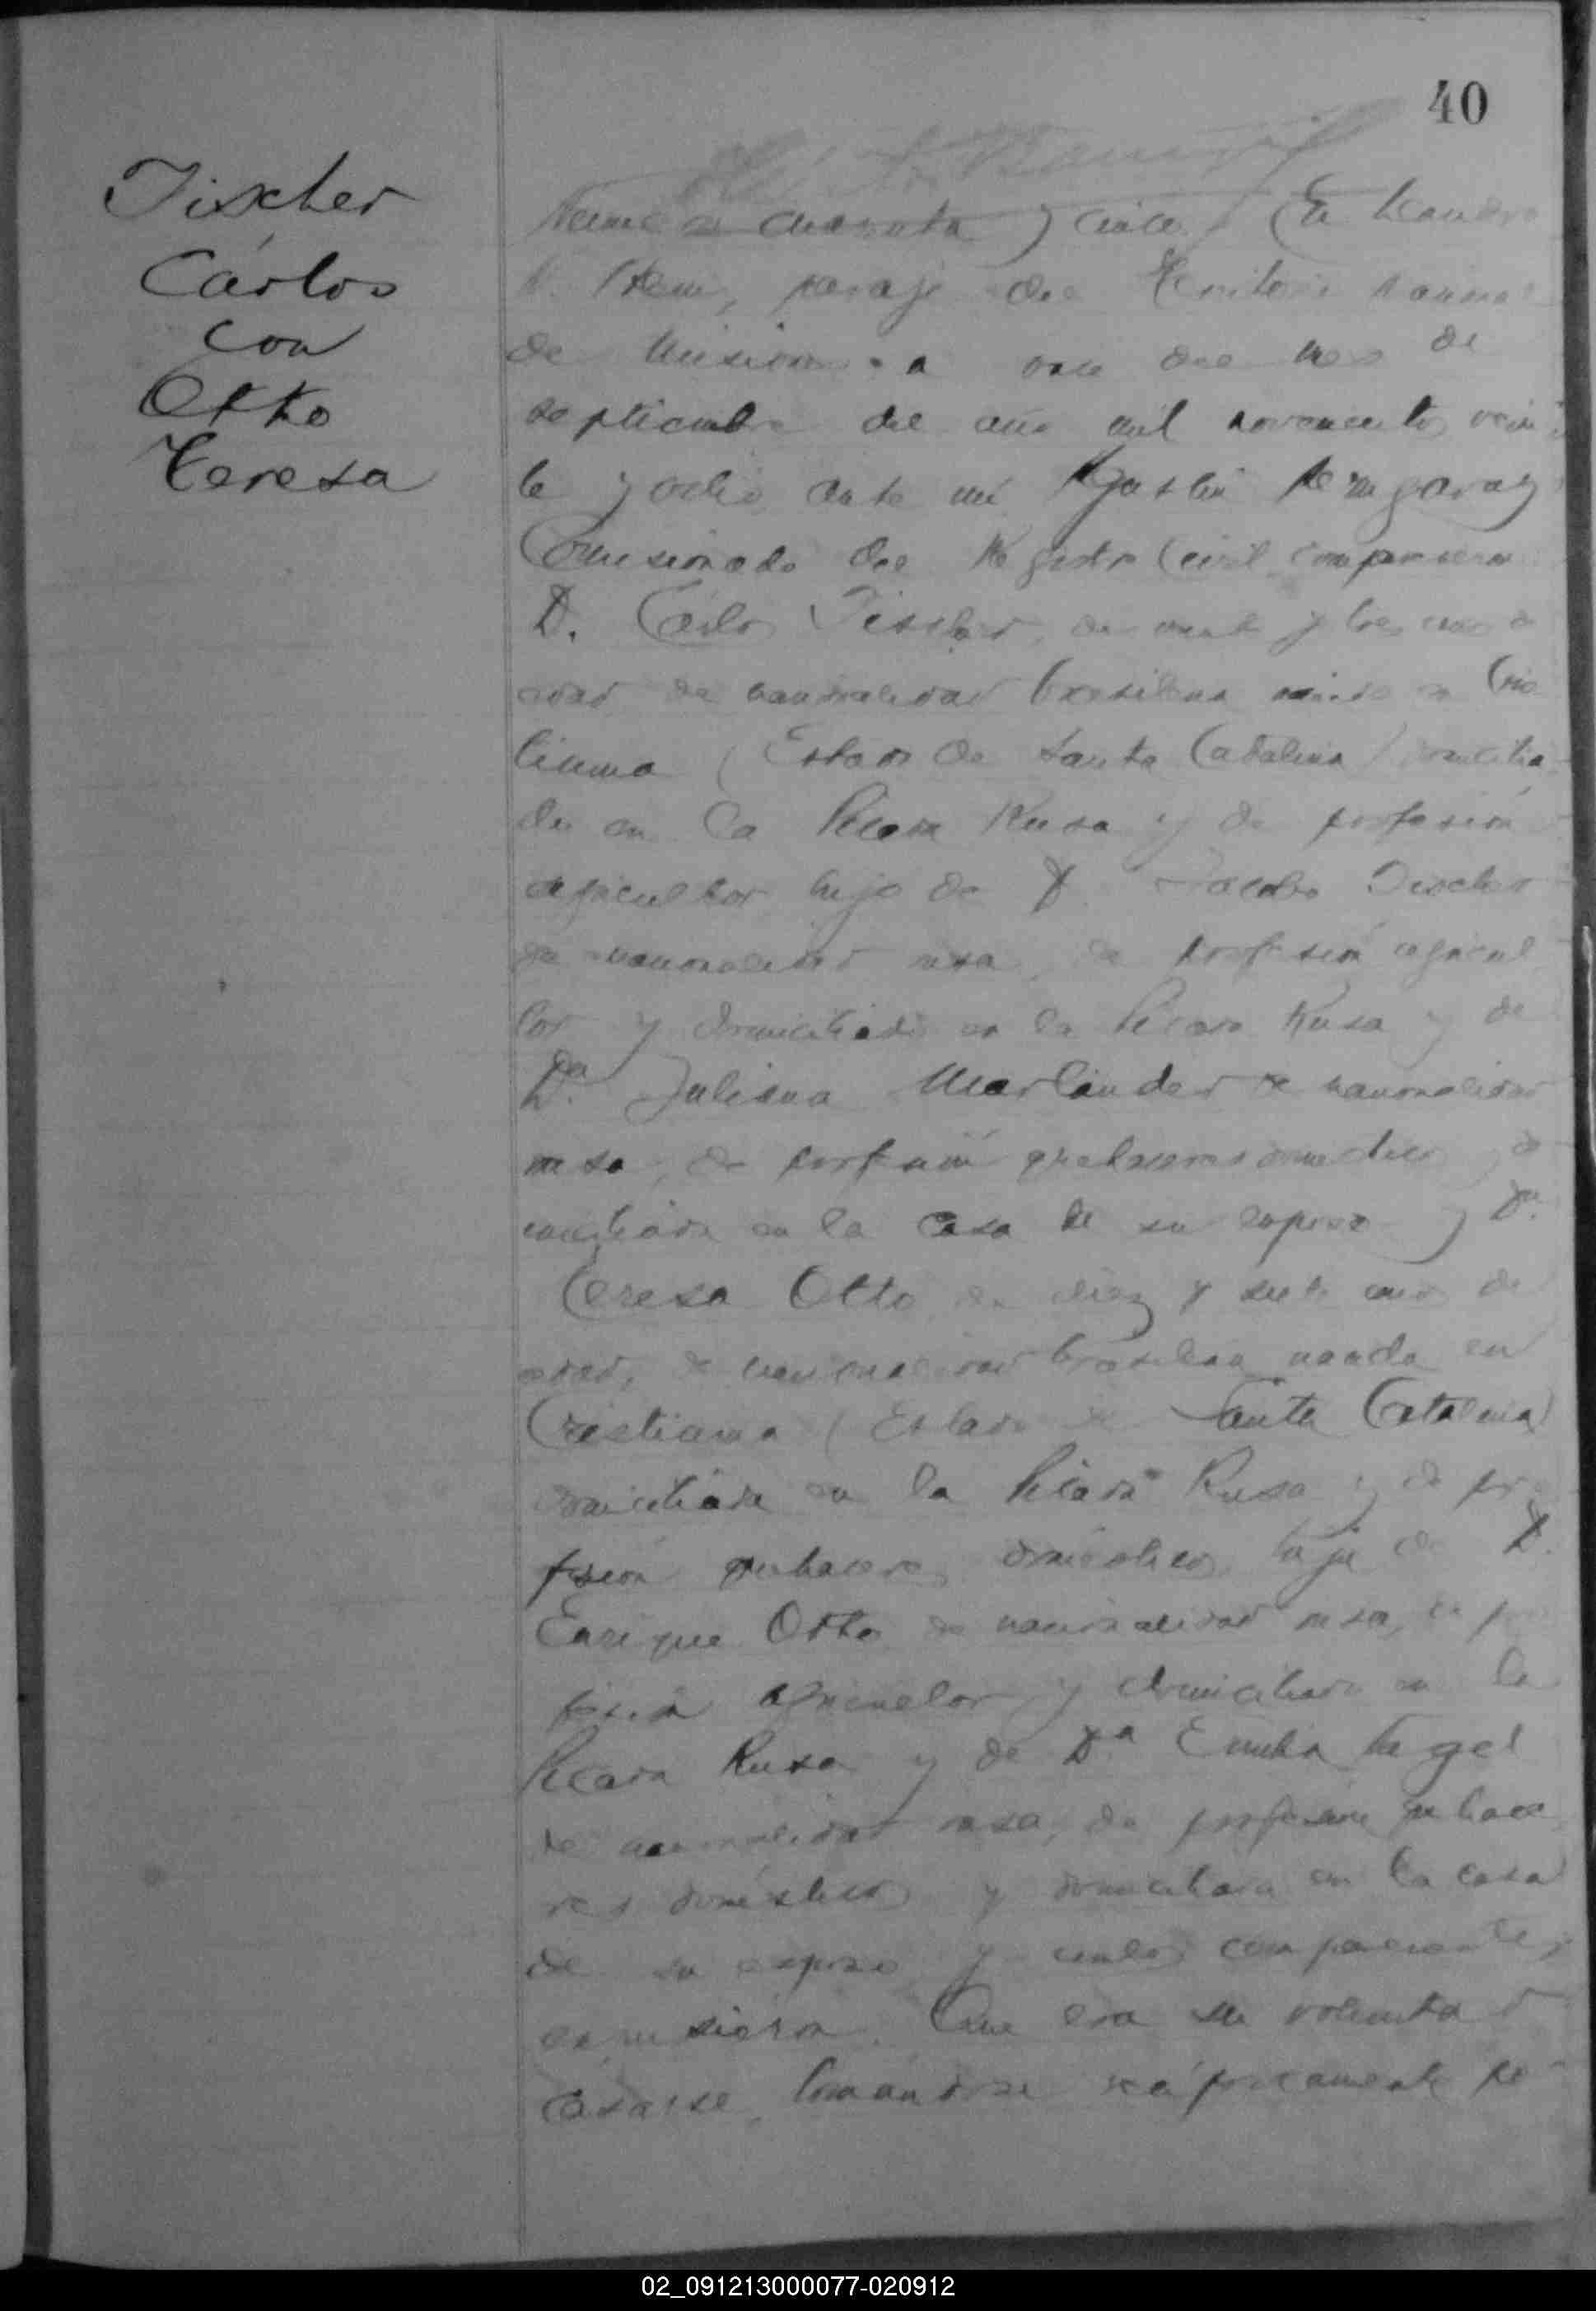 40
Tischer
Cárlos
con
Otto
Teresa
Número cuarenta y cinco En Leandro
N. Alem, paraje del Territorio Nacional
de Misiones a once del mes de
septiembre del año mil novecientos vein
te y ocho ante mí Agustín
Comisionado del Registro Civil comparecen
D. Carlos Tischer, de veinte y tres años de
edad de nacionalidad brasilena nacido en Cris
tiuma (Estado de Santa Catalina) domicilia
do en la Picada Rusa y de profesión
agricultor hijo de D. Jacobo Tischer
de nacionalidad rusa, de profesión agricul
tor y domiciliado en la Picada Rusa y de
Da. Juliana de nacionalidad
rusa, de profesión quehaceres domesticos y do
miciliada en la casa de su esposo y Da.
Teresa Otto de diez y siete años de
edad, de nacionalidad brasilena nacida en
Cristiuma (Estado de Santa Catalina)
domiciliada en la Picada Rusa y de pro
fesión quehaceres domésticos hija de D.
Enrique Otto de nacionalidad rusa, de pro
fesión agricultor y domiciliado en la
Picada Rusa y de Da. Emilia
de nacionalidad rusa, de profesión quehace
res domésticos y domiciliada en la casa
de su esposo y ambos comparecientes
expusieron. Que era su voluntad
casarse, tomándose recíprocamente po
02_091213000077-020912